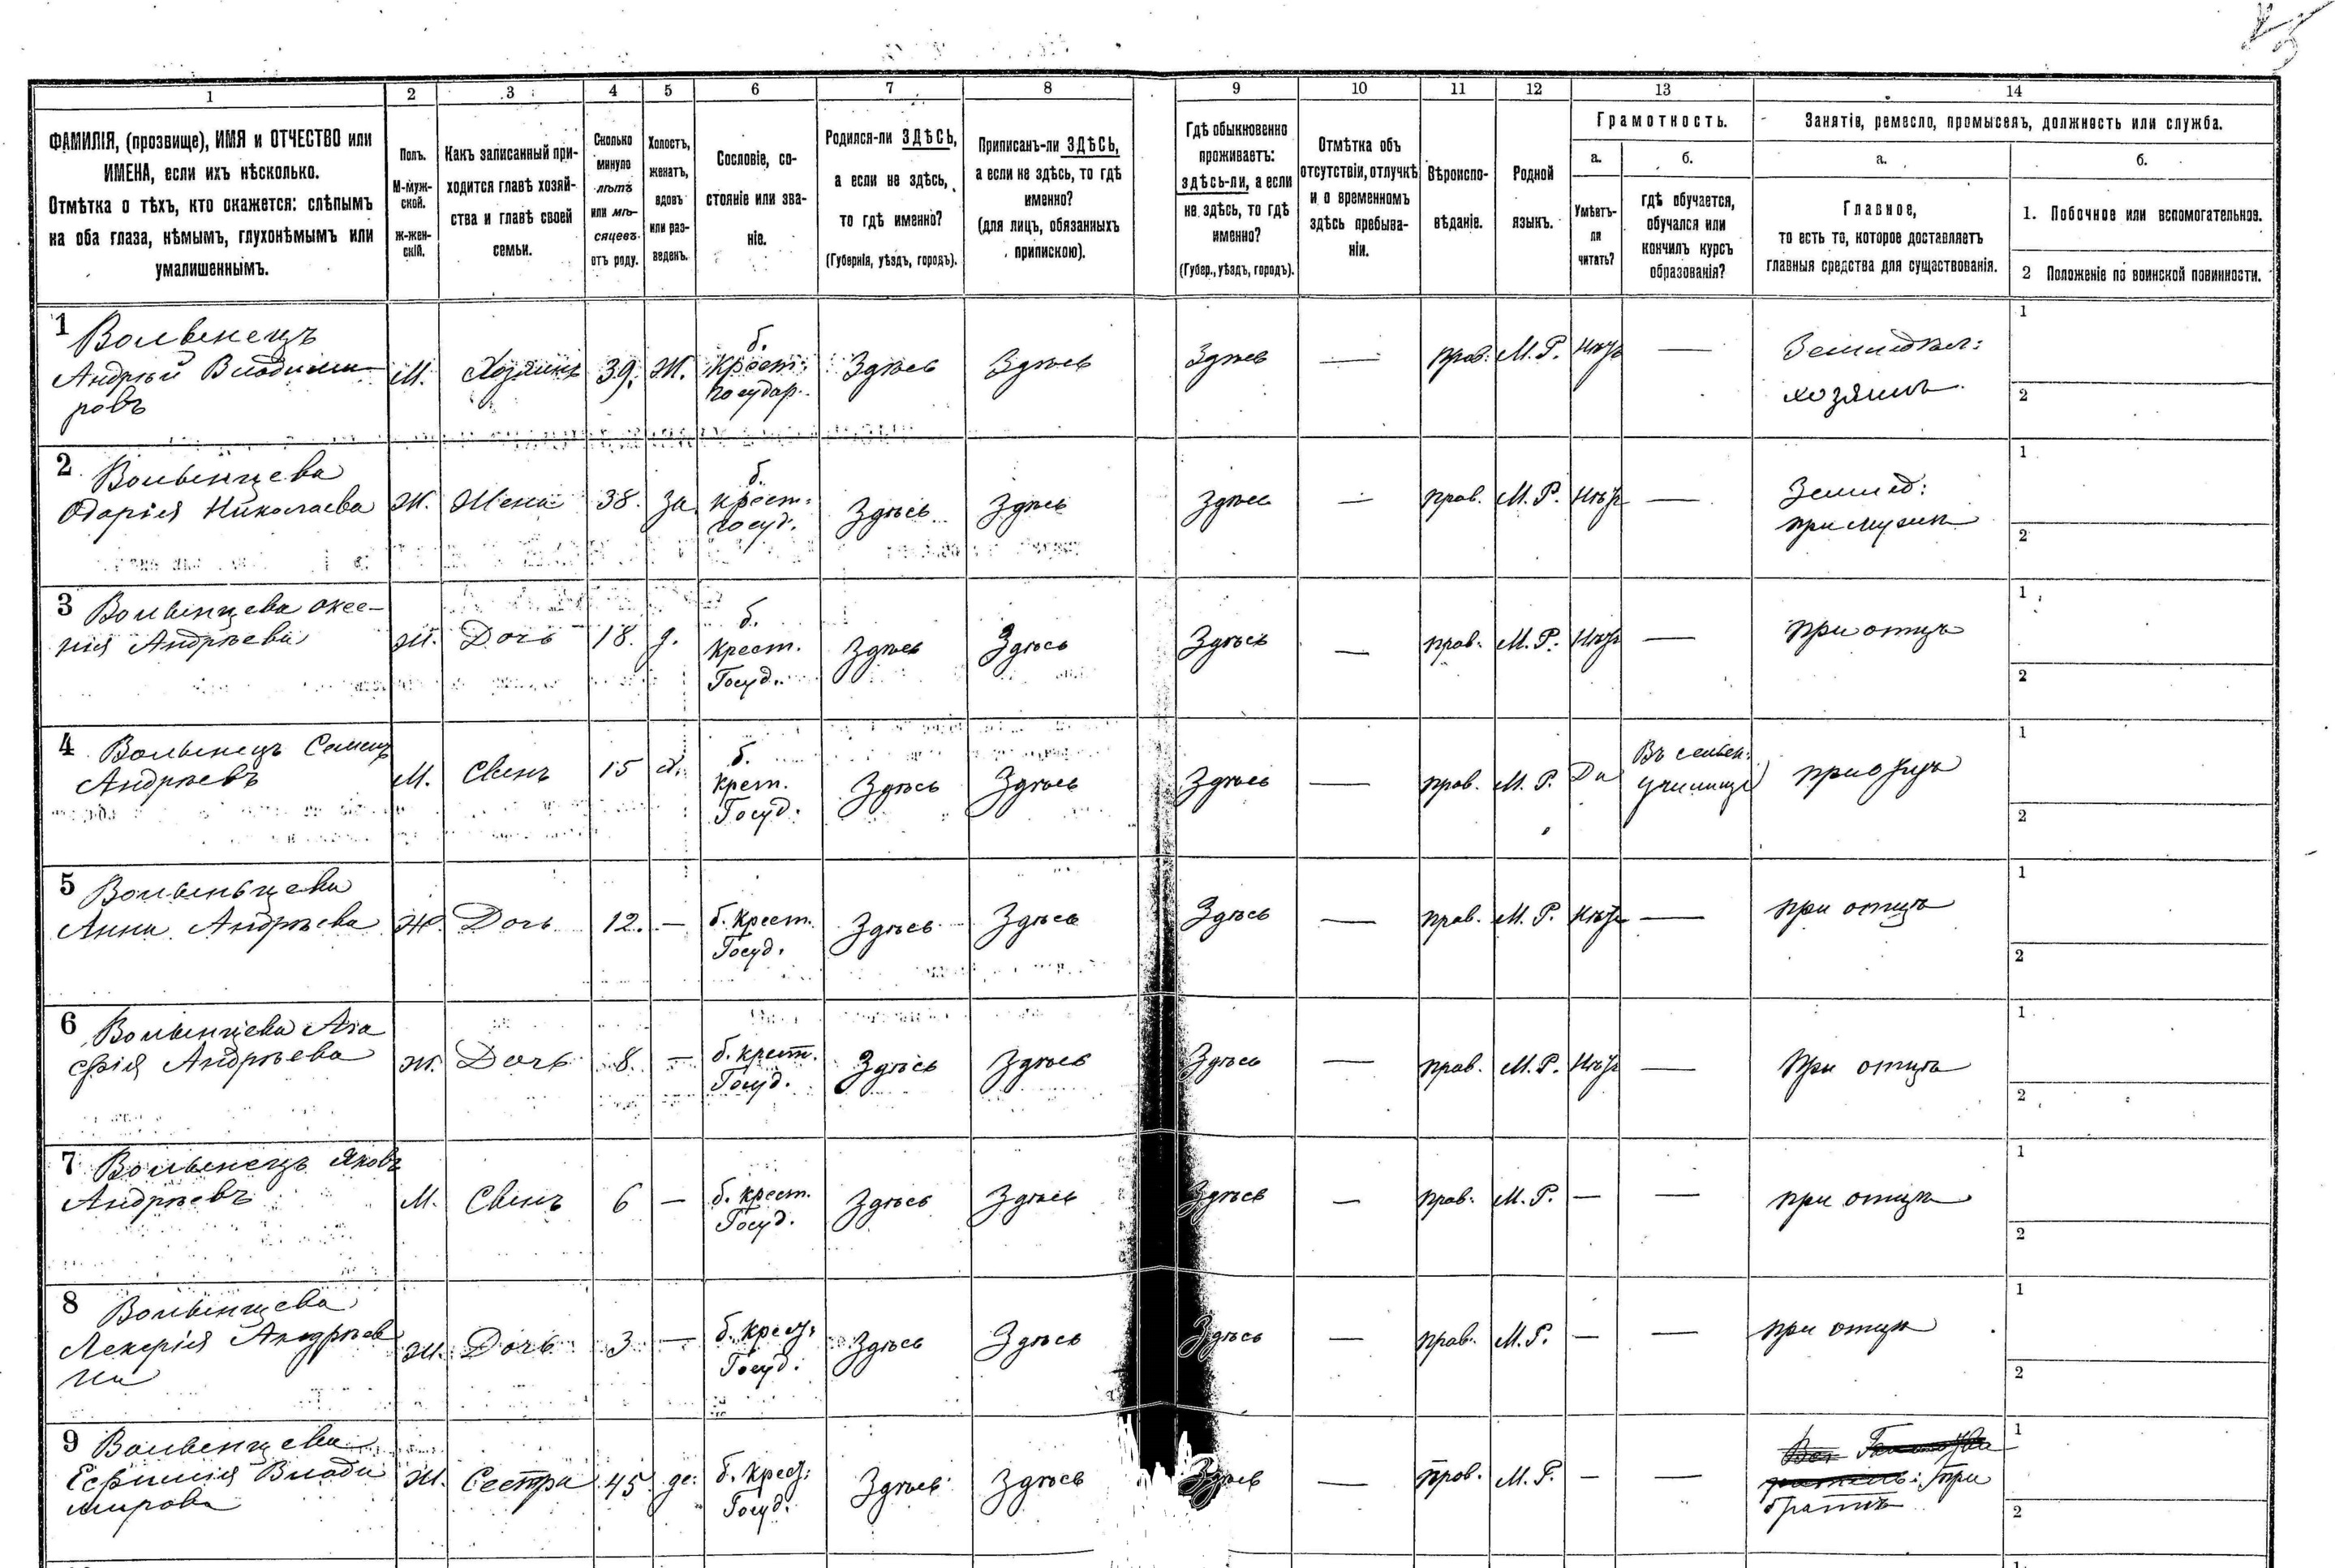 1 2 3 4 5 6 7 8 9 10 11 12 13 14
ФАМИЛІЯ, (прозвище), ИМЯ и ОТЧЕСТВО или
ИМЕНА, если ихъ нѣсколько.
Отмѣтка о тѣхъ, кто окажется: слѣпымъ
на оба глаза, нѣмымъ, глухонѣмымъ или
умалишеннымъ.
Полъ.
М-муж-
ской.
ж-жен-
скій.
Какъ записанный при-
ходится главѣ хозяй-
ства и главѣ своей
семьи.
Сколько
минуло
лѣтъ
или мѣ-
сяцевъ
отъ роду.
Холостъ,
женатъ,
вдовъ
или раз-
веденъ.
Сословіе, со-
стояніе или зва-
ніе.
Родился-ли ЗДѢСЬ,
а если не здѣсь,
то гдѣ именно?
(Губернія, уѣздъ, городъ).
Приписанъ-ли ЗДѢСЬ,
а если не здѣсь, то гдѣ
именно?
(для лицъ, обязанныхъ
припискою).
Гдѣ обыкновенно
проживаетъ:
здѣсь-ли, а если
не здѣсь, то гдѣ
именно?
(Губер., уѣздъ, городъ).
Отмѣтка объ
отсутствіи, отлучкѣ
и о временномъ
здѣсь пребыва-
ніи.
Вѣроиспо-
вѣданіе.
Родной
языкъ.
Грамотность.
а.
Умѣетъ-
ли
читать?
б.
гдѣ обучается,
обучался или
кончилъ курсъ
образованія?
Занятіе, ремесло, промыселъ, должность или служба.
а.
Главное,
то есть то, которое доставляетъ
главныя средства для существованія.
б.
1. Побочное или вспомогательное.
2 Положеніе по воинской повинности.
1 Волынецъ
Андрѣй Владими
ровъ
М. Хозяинъ 39. Ж.
б.
Крест.
государ.
Здѣсь Здѣсь Здѣсь — прав. М. Р. Нѣтъ —
Земледѣл:
хозяинъ
1
2
2 Волынцева
Одарія Николаева
Ж. Жена 38. за
б.
крест:
госуд.
Здѣсь Здѣсь Здѣсь — прав. М. Р. Нѣтъ —
Землед:
при мужѣ
1
2
3 Волынцева Оксе-
нія Андрѣева
Ж. Дочь 18. д.
б.
Крест.
Госуд.
Здѣсь Здѣсь Здѣсь — прав. М. Р. Нѣтъ —
при отцѣ
1
2
4 Волынецъ Семенъ
Андрѣевъ
М. Сынъ 15 х.
б.
Крест.
Госуд.
Здѣсь Здѣсь Здѣсь — прав. М. Р. Да
Въ сельск.
училищѣ
при отцѣ
1
2
5 Волыньцева
Анна Андрѣева
Ж. Дочь 12. —
б. Крест.
Госуд.
Здѣсь Здѣсь Здѣсь — прав. М. Р. Нѣтъ —
при отцѣ
1
2
6 Волынцева Ага
фія Андрѣева
Ж. Дочь 8. —
б. крест.
Госуд.
Здѣсь Здѣсь Здѣсь — прав. М. Р. Нѣтъ —
При отцѣ
1
2
7 Волынецъ Яковъ
Андрѣевъ
М. Сынъ 6 —
б. крест.
Госуд.
Здѣсь Здѣсь Здѣсь — прав. М. Р. — —
при отцѣ
1
2
8 Волынцева
Лекерія Андрѣев
на
Ж. Дочь 3 —
б. крест.
Госуд.
Здѣсь Здѣсь Здѣсь — прав. М. Р. — —
при отцѣ
1
2
9 Волынцева
Есфимія Влади
мирова
Ж. Сестра 45. де:
б. Крест:
Госуд.
Здѣсь Здѣсь Здѣсь — прав. М. Р. — —
При
братѣ
1
2